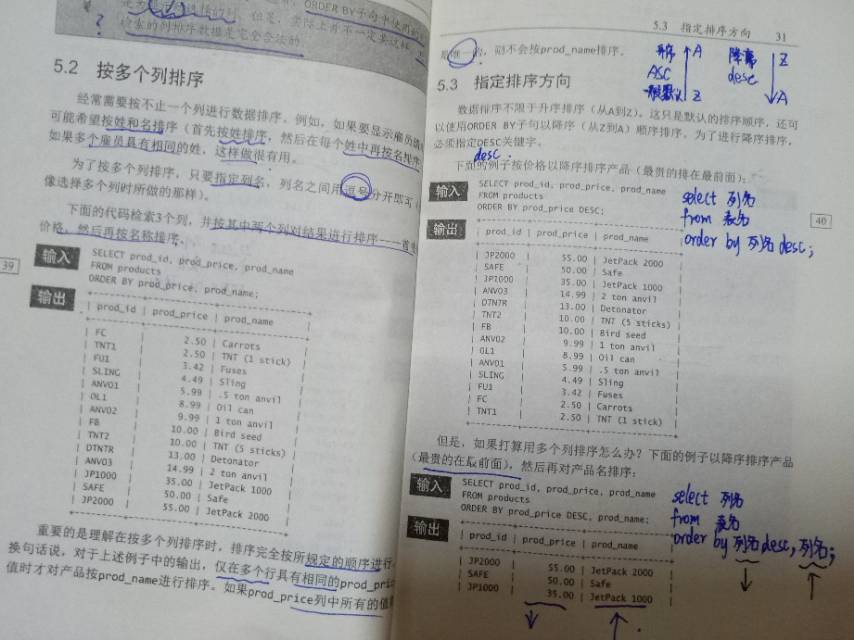 ORDER BY子句中使用的
检索的列排序数据是完全合法的
?
5.2 按多个列排序
经常需要按不止一个列进行数据排序。例如，如果要显示雇员
可能希望按姓和名排序（首先按姓排序，然后在每个姓中再按名排序
如果多个雇员具有相同的姓，这样做很有用。
为了按多个列排序，只要指定列名，列名之间用逗号分开即可（
像选择多个列时所做的那样）。
下面的代码检索3个列，并按其中两个列对结果进行排序——首先
价格，然后再按名称排序。
39
输入
SELECT prod_id, prod_price, prod_name
FROM products
ORDER BY prod_price, prod_name;
输出
| prod_id | prod_price | prod_name
| FC | 2.50 | Carrots
| TNT1 | 2.50 | TNT (1 stick)
| FU1 | 3.42 | Fuses
| SLING | 4.49 | Sling
| ANV01 | 5.99 | .5 ton anvil
| OL1 | 8.99 | Oil can
| ANV02 | 9.99 | 1 ton anvil
| FB | 10.00 | Bird seed
| TNT2 | 10.00 | TNT (5 sticks)
| DTNTR | 13.00 | Detonator
| ANV03 | 14.99 | 2 ton anvil
| JP1000 | 35.00 | JetPack 1000
| SAFE | 50.00 | Safe
| JP2000 | 55.00 | JetPack 2000
重要的是理解在按多个列排序时，排序完全按所规定的顺序进行。
换句话说，对于上述例子中的输出，仅在多个行具有相同的prod_pric
值时才对产品按prod_name进行排序。如果prod_price列中所有的值
5.3 指定排序方向 31
是唯一的，则不会按prod_name排序。
升序 A
ASC
一般默认 Z
降序 Z
desc
A
5.3 指定排序方向
数据排序不限于升序排序（从A到Z）。这只是默认的排序顺序，还可
以使用ORDER BY子句以降序（从Z到A）顺序排序。为了进行降序排序，
必须指定DESC关键字。
desc
下面的例子按价格以降序排序产品（最贵的排在最前面）：
输入
SELECT prod_id, prod_price, prod_name
FROM products
ORDER BY prod_price DESC;
select 列名
from 表名
order by 列名 desc;
40
输出
| prod_id | prod_price | prod_name |
| JP2000 | 55.00 | JetPack 2000 |
| SAFE | 50.00 | Safe |
| JP1000 | 35.00 | JetPack 1000 |
| ANV03 | 14.99 | 2 ton anvil |
| DTNTR | 13.00 | Detonator |
| TNT2 | 10.00 | TNT (5 sticks) |
| FB | 10.00 | Bird seed |
| ANV02 | 9.99 | 1 ton anvil |
| OL1 | 8.99 | Oil can |
| ANV01 | 5.99 | .5 ton anvil |
| SLING | 4.49 | Sling |
| FU1 | 3.42 | Fuses |
| FC | 2.50 | Carrots |
| TNT1 | 2.50 | TNT (1 stick) |
但是，如果打算用多个列排序怎么办？下面的例子以降序排序产品
（最贵的在最前面），然后再对产品名排序：
输入
SELECT prod_id, prod_price, prod_name
FROM products
ORDER BY prod_price DESC, prod_name;
select 列名
from 表名
order by 列名 desc, 列名;
输出
| prod_id | prod_price | prod_name |
| JP2000 | 55.00 | JetPack 2000 |
| SAFE | 50.00 | Safe |
| JP1000 | 35.00 | JetPack 1000 |